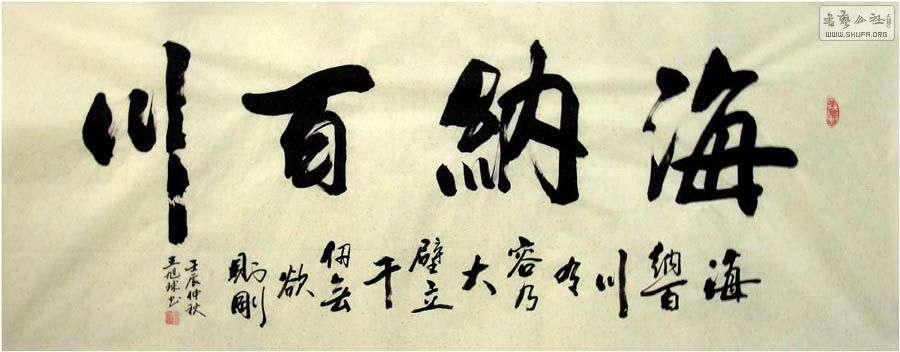 海納百川
海
納百
川
有
容乃
大
壁立
千
仞無
欲
則剛
壬辰仲秋
王旭球书
書藝公社
WWW.SHUFA.ORG